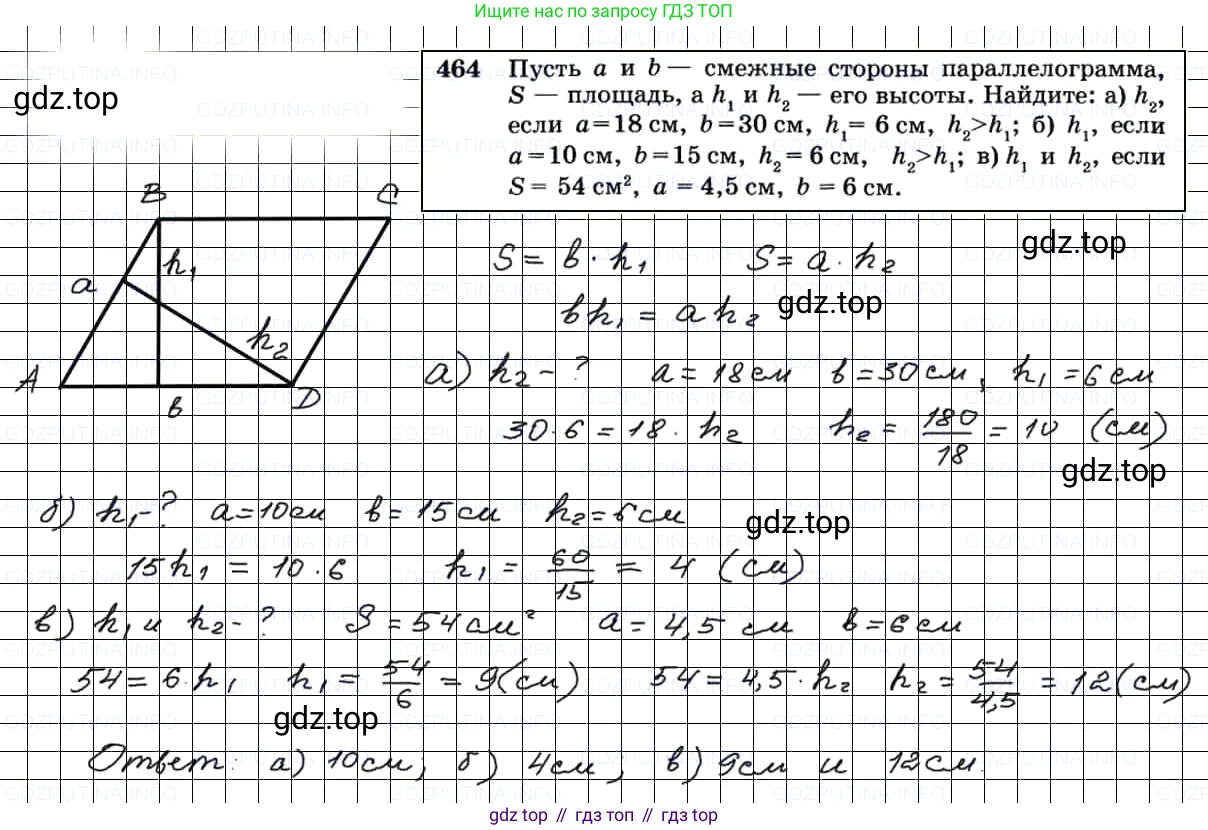 Ищите нас по запросу ГДЗ ТОП
gdz.top
464 Пусть a и b — смежные стороны параллелограмма,
S — площадь, а h₁ и h₂ — его высоты. Найдите: а) h₂,
если a=18 см, b=30 см, h₁= 6 см, h₂>h₁; б) h₁, если
a=10 см, b=15 см, h₂=6 см, h₂>h₁; в) h₁ и h₂, если
S= 54 см², a = 4,5 см, b = 6 см.
B C
a h₁ h₂
A в D
S = в · h₁ S = a · h₂
gdz.top
вh₁ = a h₂
gdz.top
а) h₂ - ? a = 18 см в = 30 см, h₁ = 6 см
30·6 = 18 · h₂ h₂ = 180/18 = 10 (см)
gdz.top
б) h₁-? a=10см в = 15 см h₂=6см
gdz.top
15h₁ = 10·6 h₁ = 60/15 = 4 (см)
в) h₁ и h₂-? S = 54 см² a = 4,5 см в=6см
54 = 6·h₁ h₁ = 54/6 = 9(см) 54 = 4,5·h₂ h₂ = 54/4,5 = 12(см)
gdz.top
Ответ: а) 10см; б) 4см; в) 9см и 12см.
gdz top // гдз топ // gdz top
GDZPUTINA.INFO